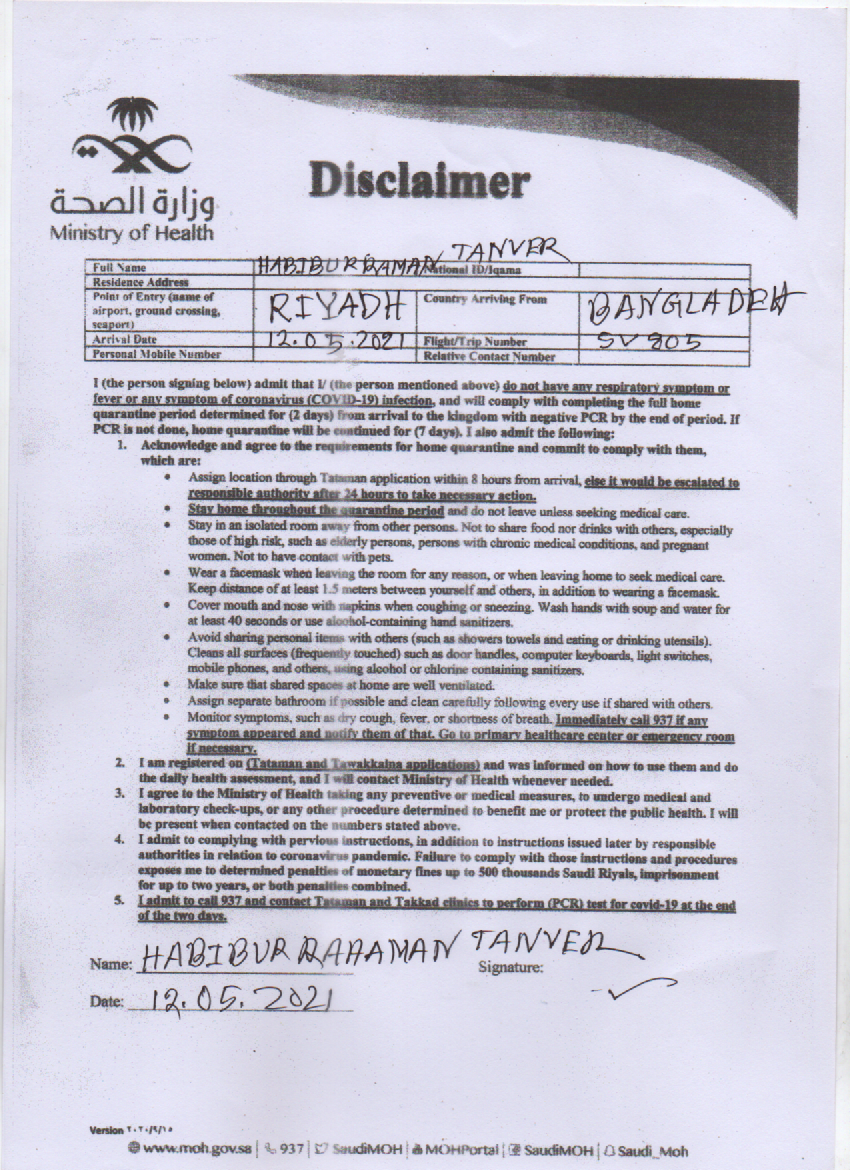 وزارة الصحة
Ministry of Health
Disclaimer
Full Name HABIBUR RAMAN TANVER National ID/Iqama
Residence Address
Point of Entry (name of airport, ground crossing, seaport) RIYADH Country Arriving From BANGLADEH
Arrival Date 12.05.2021 Flight/Trip Number SV 805
Personal Mobile Number Relative Contact Number
I (the person signing below) admit that I/ (the person mentioned above) do not have any respiratory symptom or
fever or any symptom of coronavirus (COVID-19) infection, and will comply with completing the full home
quarantine period determined for (2 days) from arrival to the kingdom with negative PCR by the end of period. If
PCR is not done, home quarantine will be continued for (7 days). I also admit the following:
1. Acknowledge and agree to the requirements for home quarantine and commit to comply with them,
which are:
• Assign location through Tataman application within 8 hours from arrival, else it would be escalated to
responsible authority after 24 hours to take necessary action.
• Stay home throughout the quarantine period and do not leave unless seeking medical care.
• Stay in an isolated room away from other persons. Not to share food nor drinks with others, especially
those of high risk, such as elderly persons, persons with chronic medical conditions, and pregnant
women. Not to have contact with pets.
• Wear a facemask when leaving the room for any reason, or when leaving home to seek medical care.
Keep distance of at least 1.5 meters between yourself and others, in addition to wearing a facemask.
• Cover mouth and nose with napkins when coughing or sneezing. Wash hands with soap and water for
at least 40 seconds or use alcohol-containing hand sanitizers.
• Avoid sharing personal items with others (such as showers towels and eating or drinking utensils).
Cleans all surfaces (frequently touched) such as door handles, computer keyboards, light switches,
mobile phones, and others, using alcohol or chlorine containing sanitizers.
• Make sure that shared spaces at home are well ventilated.
• Assign separate bathroom if possible and clean carefully following every use if shared with others.
• Monitor symptoms, such as dry cough, fever, or shortness of breath. Immediately call 937 if any
symptom appeared and notify them of that. Go to primary healthcare center or emergency room
if necessary.
2. I am registered on (Tataman and Tawakkalna applications) and was informed on how to use them and do
the daily health assessment, and I will contact Ministry of Health whenever needed.
3. I agree to the Ministry of Health taking any preventive or medical measures, to undergo medical and
laboratory check-ups, or any other procedure determined to benefit me or protect the public health. I will
be present when contacted on the numbers stated above.
4. I admit to complying with pervious instructions, in addition to instructions issued later by responsible
authorities in relation to coronavirus pandemic. Failure to comply with those instructions and procedures
exposes me to determined penalties of monetary fines up to 500 thousands Saudi Riyals, imprisonment
for up to two years, or both penalties combined.
5. I admit to call 937 and contact Tataman and Takkad clinics to perform (PCR) test for covid-19 at the end
of the two days.
Name: HABIBUR RAHAMAN TANVER Signature:
Date: 12.05.2021
Version
www.moh.gov.sa | 937 | SaudiMOH | MOHPortal | SaudiMOH | Saudi_Moh